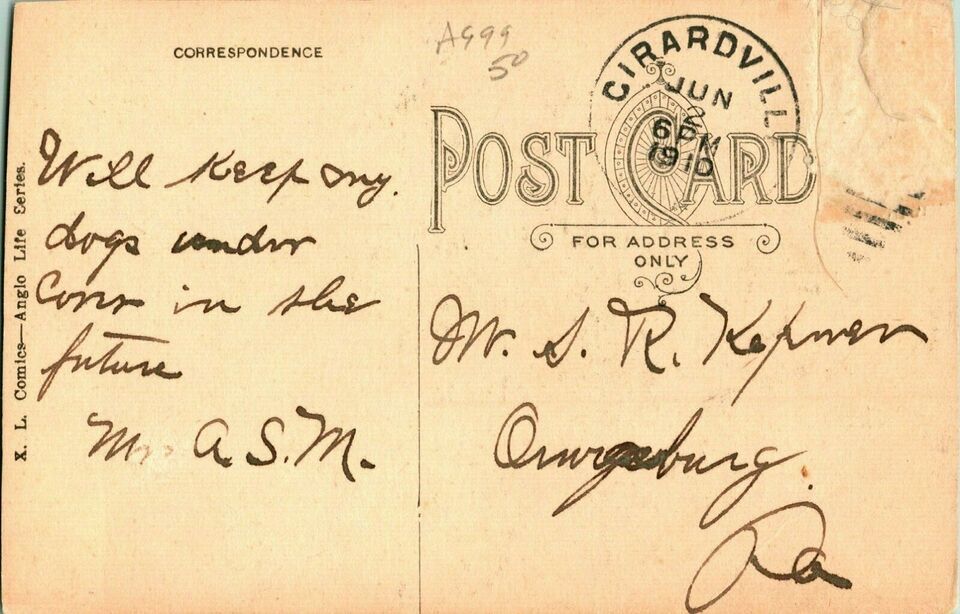 CORRESPONDENCE
A999
50
GIRARDVILL
JUN
2
6 PM
1910
POST CARD
FOR ADDRESS
ONLY
X. L. Comics—Anglo Life Series.
Will keep my
dogs under
Cover in the
future
A. S. M.
S. R. Kepner
Orwigsburg.
Pa